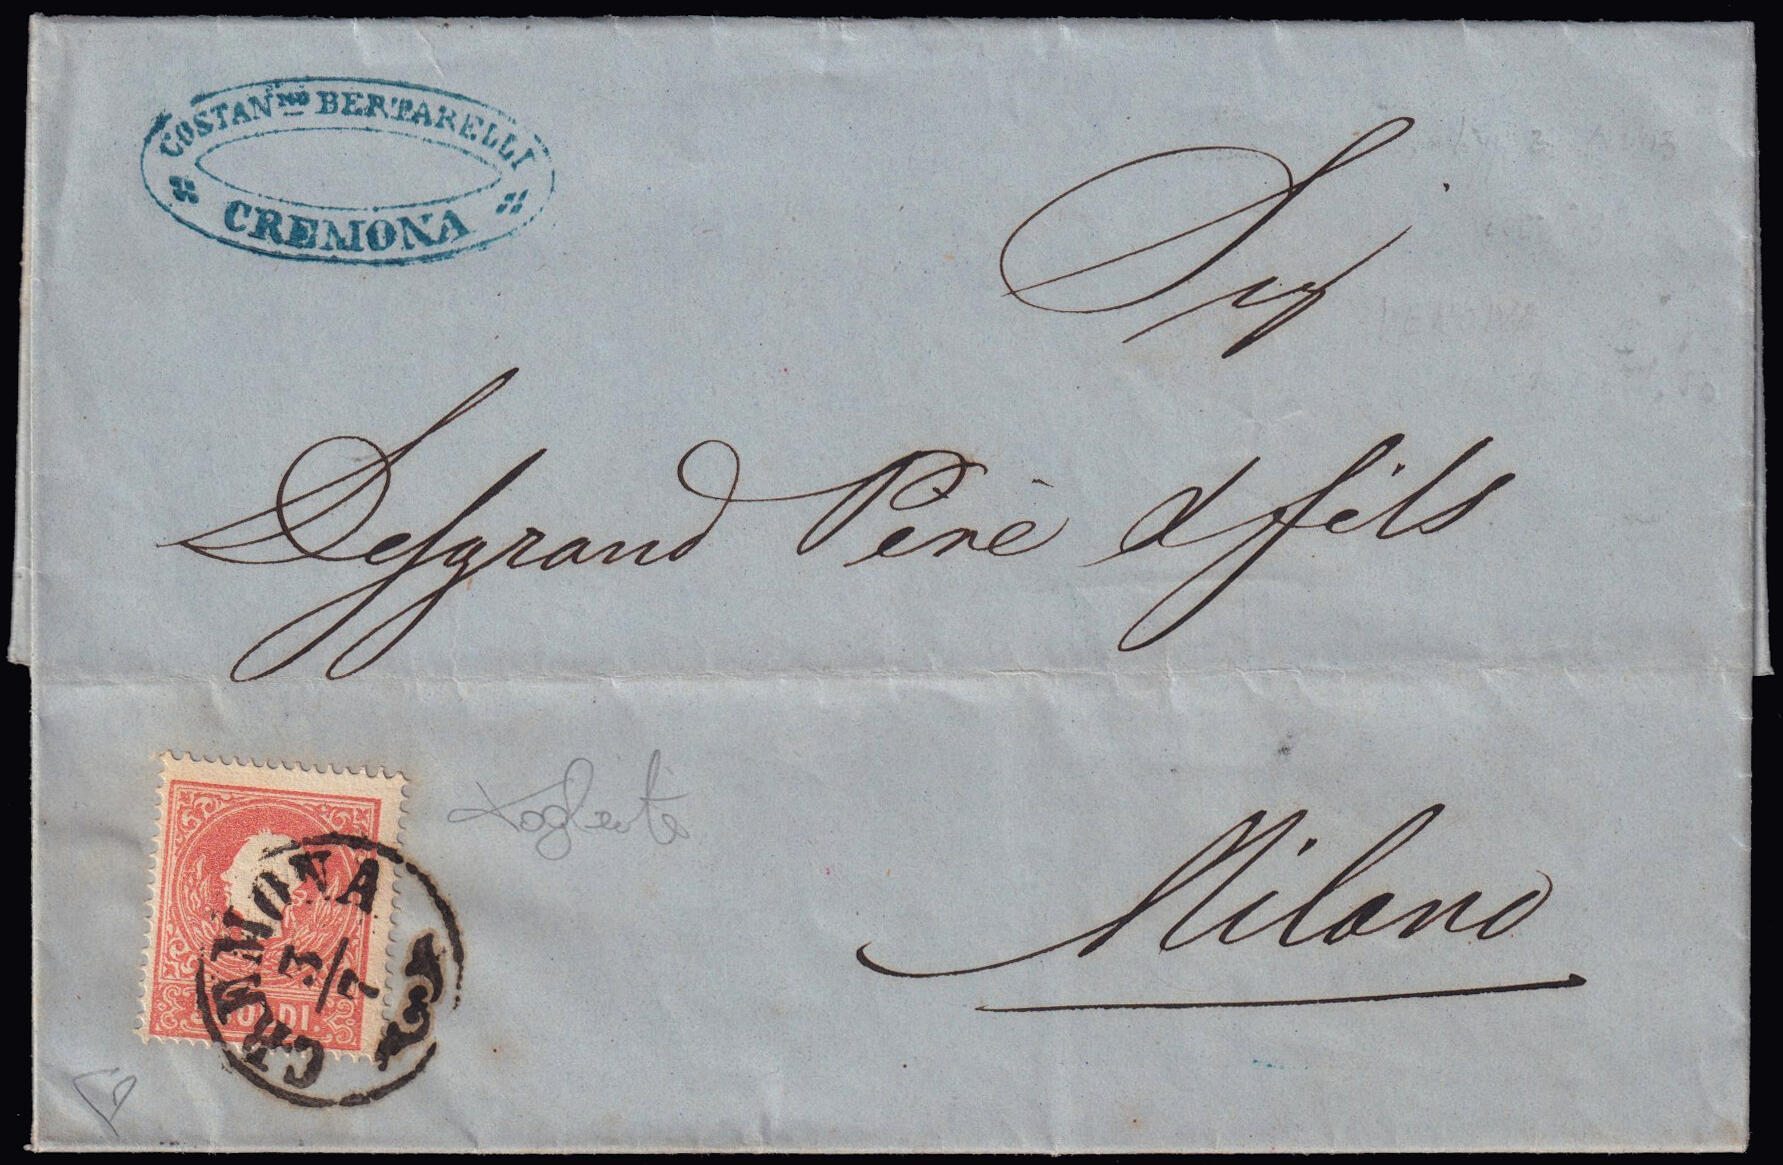 COSTANno BERTARELLI
CREMONA
Sigr
Desgrand Pere & fils
Milano
CREMONA
3/7
SOLDI.